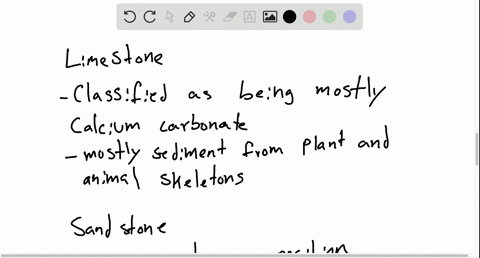 Limestone
- Classified as being mostly
Calcium carbonate
- mostly sediment from plant and
animal skeletons
Sandstone